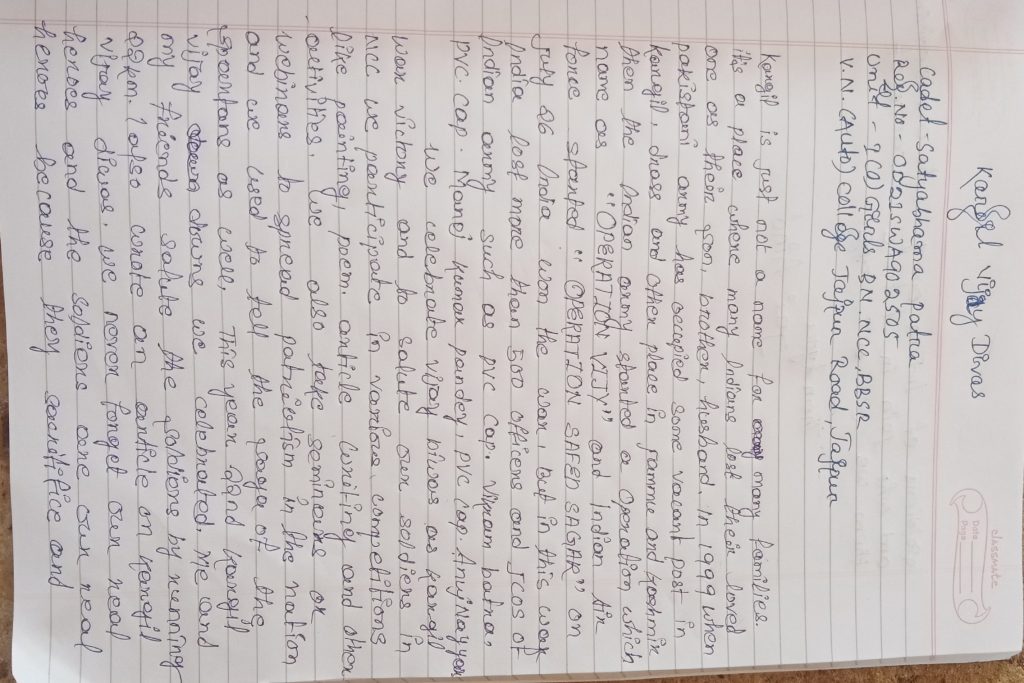 classmate
Date
Page
Kargil Vijay Diwas
Cadet - Satyabhama patra
Reg. No - OD21SWA902505
Unit - 9(O) Girls BN. NCC, BBSR
V.N. (Auto) College Jajpur Road, Jajpur
Kargil is just not a name for many families.
its a place where many Indians lost their loved
one as their son, brother, husband. in 1999 when
pakistani army has occupied some vacant post in
kargil, drass and other place in jammu and kashmir
then the Indian army started a operation which
name as "OPERATION VIJY" and Indian Air
force started "OPERATION SAFER SAGAR" on
July 26 India won the war, but in this war
India lost more than 500 officers and Jcos of
Indian army such as pvc cap. Vikram batra,
pvc cap. Manoj kumar pandey, pvc cap. Anuj Nayyar
we celebrate vijay biwas as kargil
war victory and to salute our soldiers in
NCC we participate in various competitions
like painting, poem. article writing and other
activities. we also take seminars or
webinars to spread patriotism in the nation
and we used to tell the saga of the
spoentans as well, This year 22nd kargil
vijay diwas we celebrated. Me and
my friends salute the soldiers by running
22km. I also wrote an article on kargil
vijay diwas. we never forget our real
heroes and the soldiers are our real
heroes because they sacrifice and